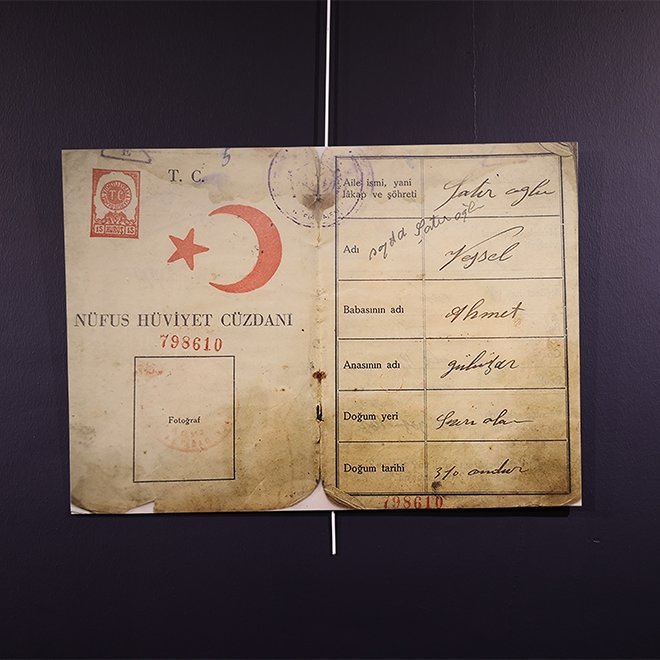 T. C.
T C
15 15
NÜFUS HÜVİYET CÜZDANI
798610
Fotoğraf
Aile ismi, yani lâkap ve şöhreti
Şatir oğlu
soyadı Şatıroğlu
Adı
Veysel
Babasının adı
Ahmet
Anasının adı
gülizar
Doğum yeri
Doğum tarihi
310
798610